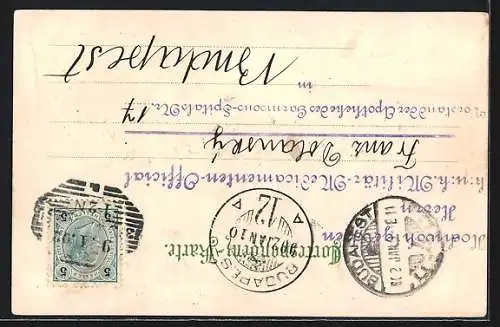 Correspondenz-Karte.
Hochwohlgeboren
Herrn
k. u. k. Militär-Medicamenten-Official
Franz Dolanský
Vorstand der Apotheke des Garnisons-Spitals Nr. 17
in
Budapest
BUDAPEST
902 JAN 10
72
BUDAPEST
902 JAN
5 5
5 5